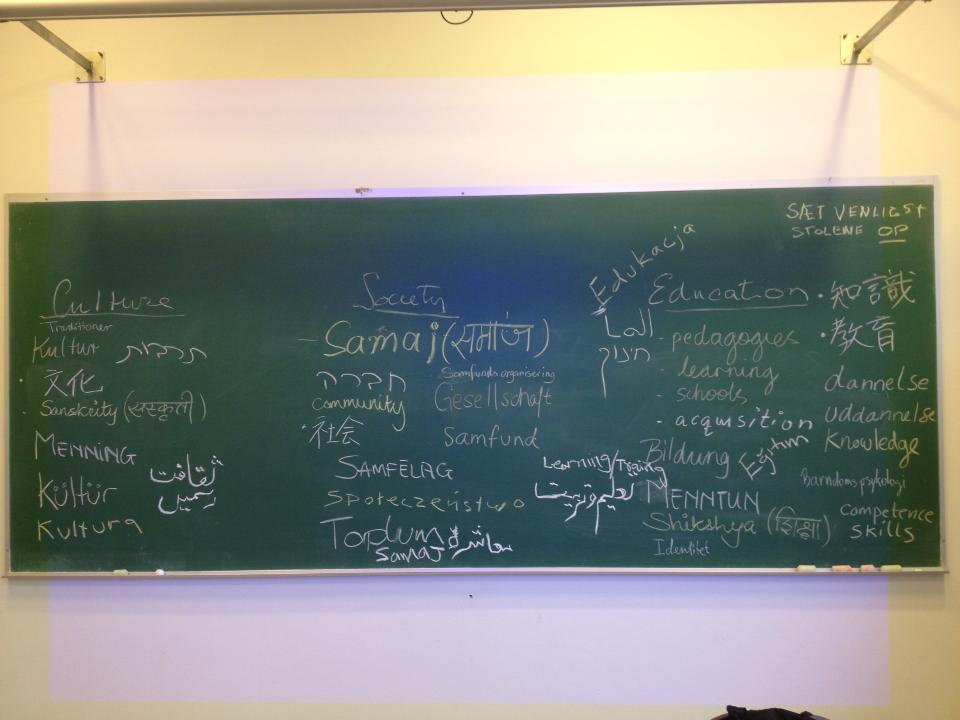 SÆT VENLIGST
STOLENE OP
Culture
Traditioner
Kultur תרבות
文化
Sanskrity (संस्कृती)
MENNING
ثقافت
رسمیں
Kültür
Kultura
Society
- Samaj (समाज)
חברה
Samfunds organisering
community
Gesellschaft
· 社会
Samfund
SAMFÉLAG
Społeczeństwo
Toplum
Samaj معاشرہ
Edukacja
Education
חנוך
- pedagogies
- learning
- schools
- acqusition
Bildung
Eğitim
Learning/Traing
تعلیم و تربیت
MENNTUN
Shikshya (शिक्षा)
Identitet
· 知識
· 教育
dannelse
Uddannelse
Knowledge
Barndoms psykologi
competence
skills